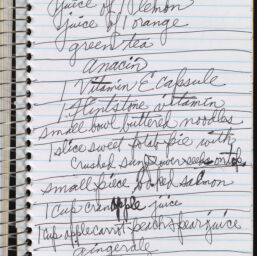 juice of 1 lemon
juice of 1 orange
green tea
anacin
1 Vitamin E capsule
1 Flintstone vitamin
small bowl buttered noodles
1 slice sweet potato pie with
crushed sunflower seeds on top
small piece baked salmon
1 cup cranapple juice
1 cup apple carrot peach & pear juice
gingerale